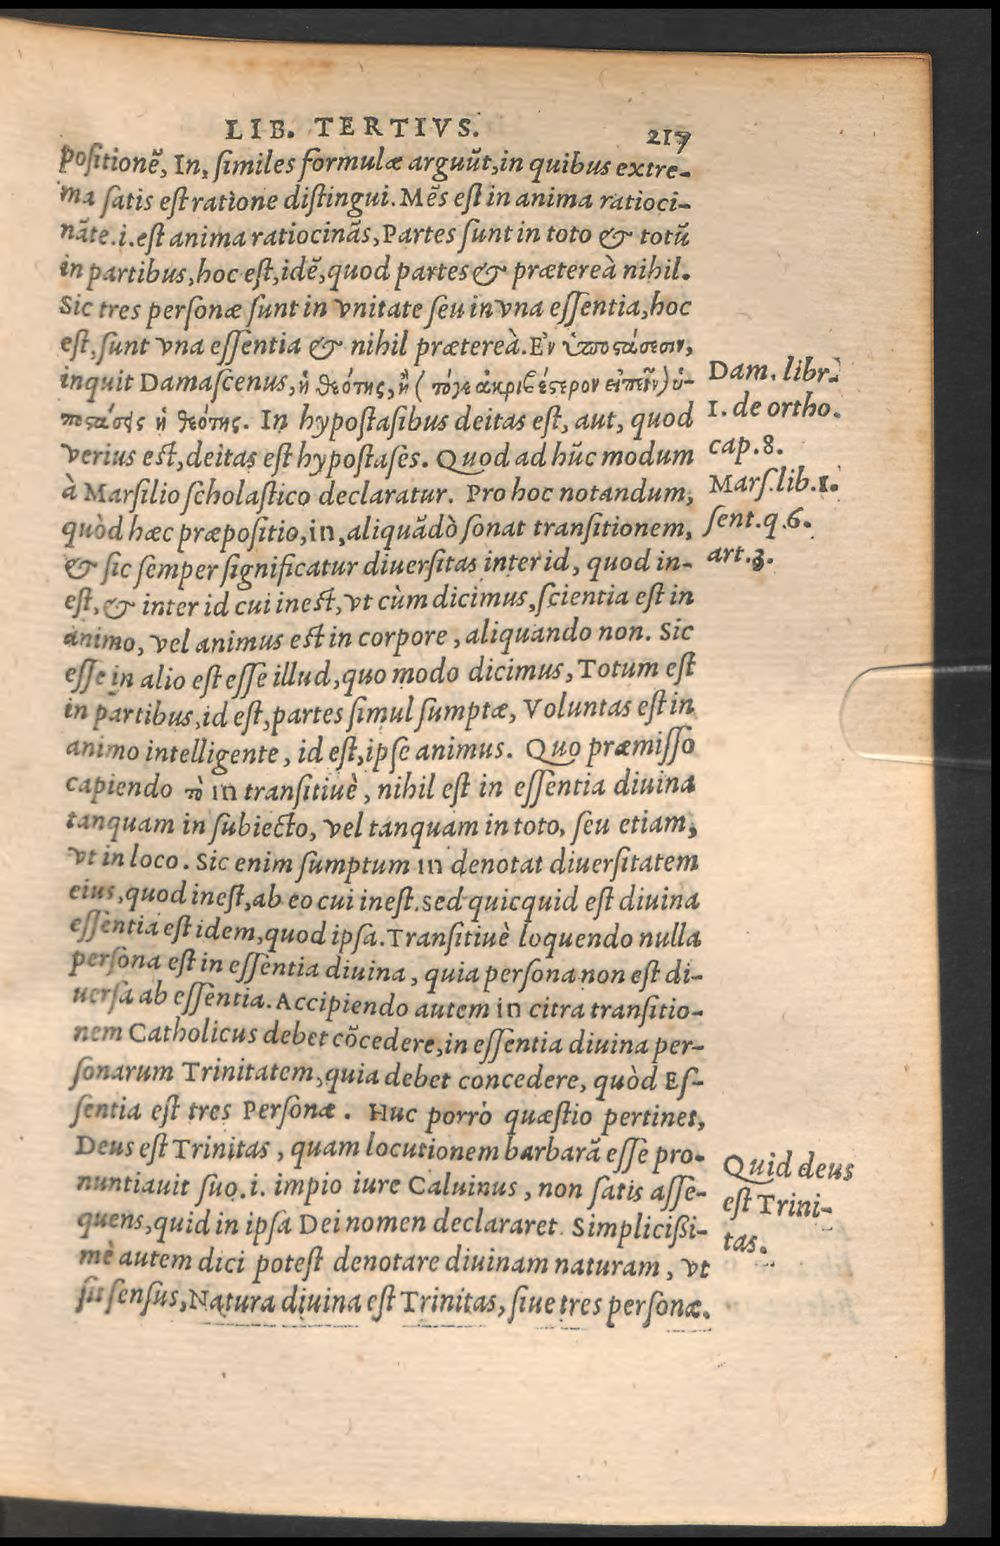 LIB. TERTIVS. 217
positionẽ, In, similes formulæ arguũt, in quibus extre-
ma satis est ratìone distingui. Mẽs est in anima ratioci-
nãte .i. est anima ratiocinãs, Partes sunt in toto & totũ
in partibus, hoc est, idẽ, quod partes & prætereà nihil.
Sic tres personæ sunt in vnitate seu in vna essentia, hoc
est, sunt vna essentia & nihil prætereà. Εν ὑποςάσεσιν,
inquit Damascenus, ἡ θεότης, ἢ ( τόγε ἀκριβέςερον εἰπεῖν) ὑ-
ποςάσεις ἡ θεότης. In hypostasibus deitas est, aut, quod
verius est, deitas est hypostases. Quod ad hũc modum
à Marsilio scholastico declaratur. Pro hoc notandum,
quòd hæc præpositio, in, aliquãdò sonat transitionem,
& sic semper significatur diuersitas inter id, quod in-
est, & inter id cui inest, vt cùm dicimus, scientia est in
animo, vel animus est in corpore, aliquando non. Sic
esse in alio est esse illud, quo modo dicimus, Totum est
in partibus, id est, partes simul sumptæ, Voluntas est in
animo intelligente, id est, ipse animus. Quo præmisso
capiendo τὸ in transitiuè, nihil est in essentia diuina
tanquam in subiecto, vel tanquam in toto, seu etiam,
vt in loco. Sic enim sumptum in denotat diuersitatem
eius, quod inest, ab eo cui inest. sed quicquid est diuina
essentia est idem, quod ipsa. Transitiuè loquendo nulla
persona est in essentia diuina, quia persona non est di-
uersa ab essentia. Accipiendo autem in citra transitio-
nem Catholicus debet cõcedere, in essentia diuina per-
sonarum Trinitatem, quia debet concedere, quòd Es-
sentia est tres Personæ. Huc porrò quæstio pertinet,
Deus est Trinitas, quam locutionem barbarã esse pro-
nuntiauit suo .i. impio iure Caluinus, non satis asse-
quens, quid in ipsa Dei nomen declararet. Simplicißi-
mè autem dici potest denotare diuinam naturam, vt
sit sensus, Natura diuina est Trinitas, siue tres personæ.
Dam. libr.
I. de ortho.
cap. 8.
Mars. lib. 1.
sent. q. 6.
art. 3.
Quid deus
est Trini-
tas.